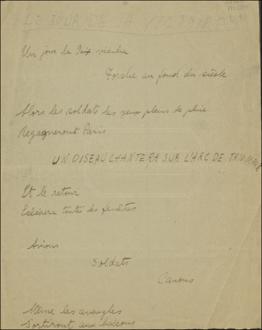 LE JOUR DE LA VICTOIRE
Un jour la Paix
au fond du siècle
Alors les soldats les yeux pleins de pluie
Regagneront Paris
UN OISEAU CHANTERA SUR L'ARC DE TRIOMPHE
Et le retour
toutes les fenêtres
Avions
Soldats
Canons
Même les aveugles
Sortiront aux balcons